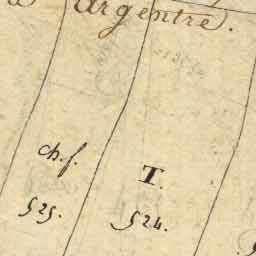 argentré.
ch. f.
T.
525.
524.